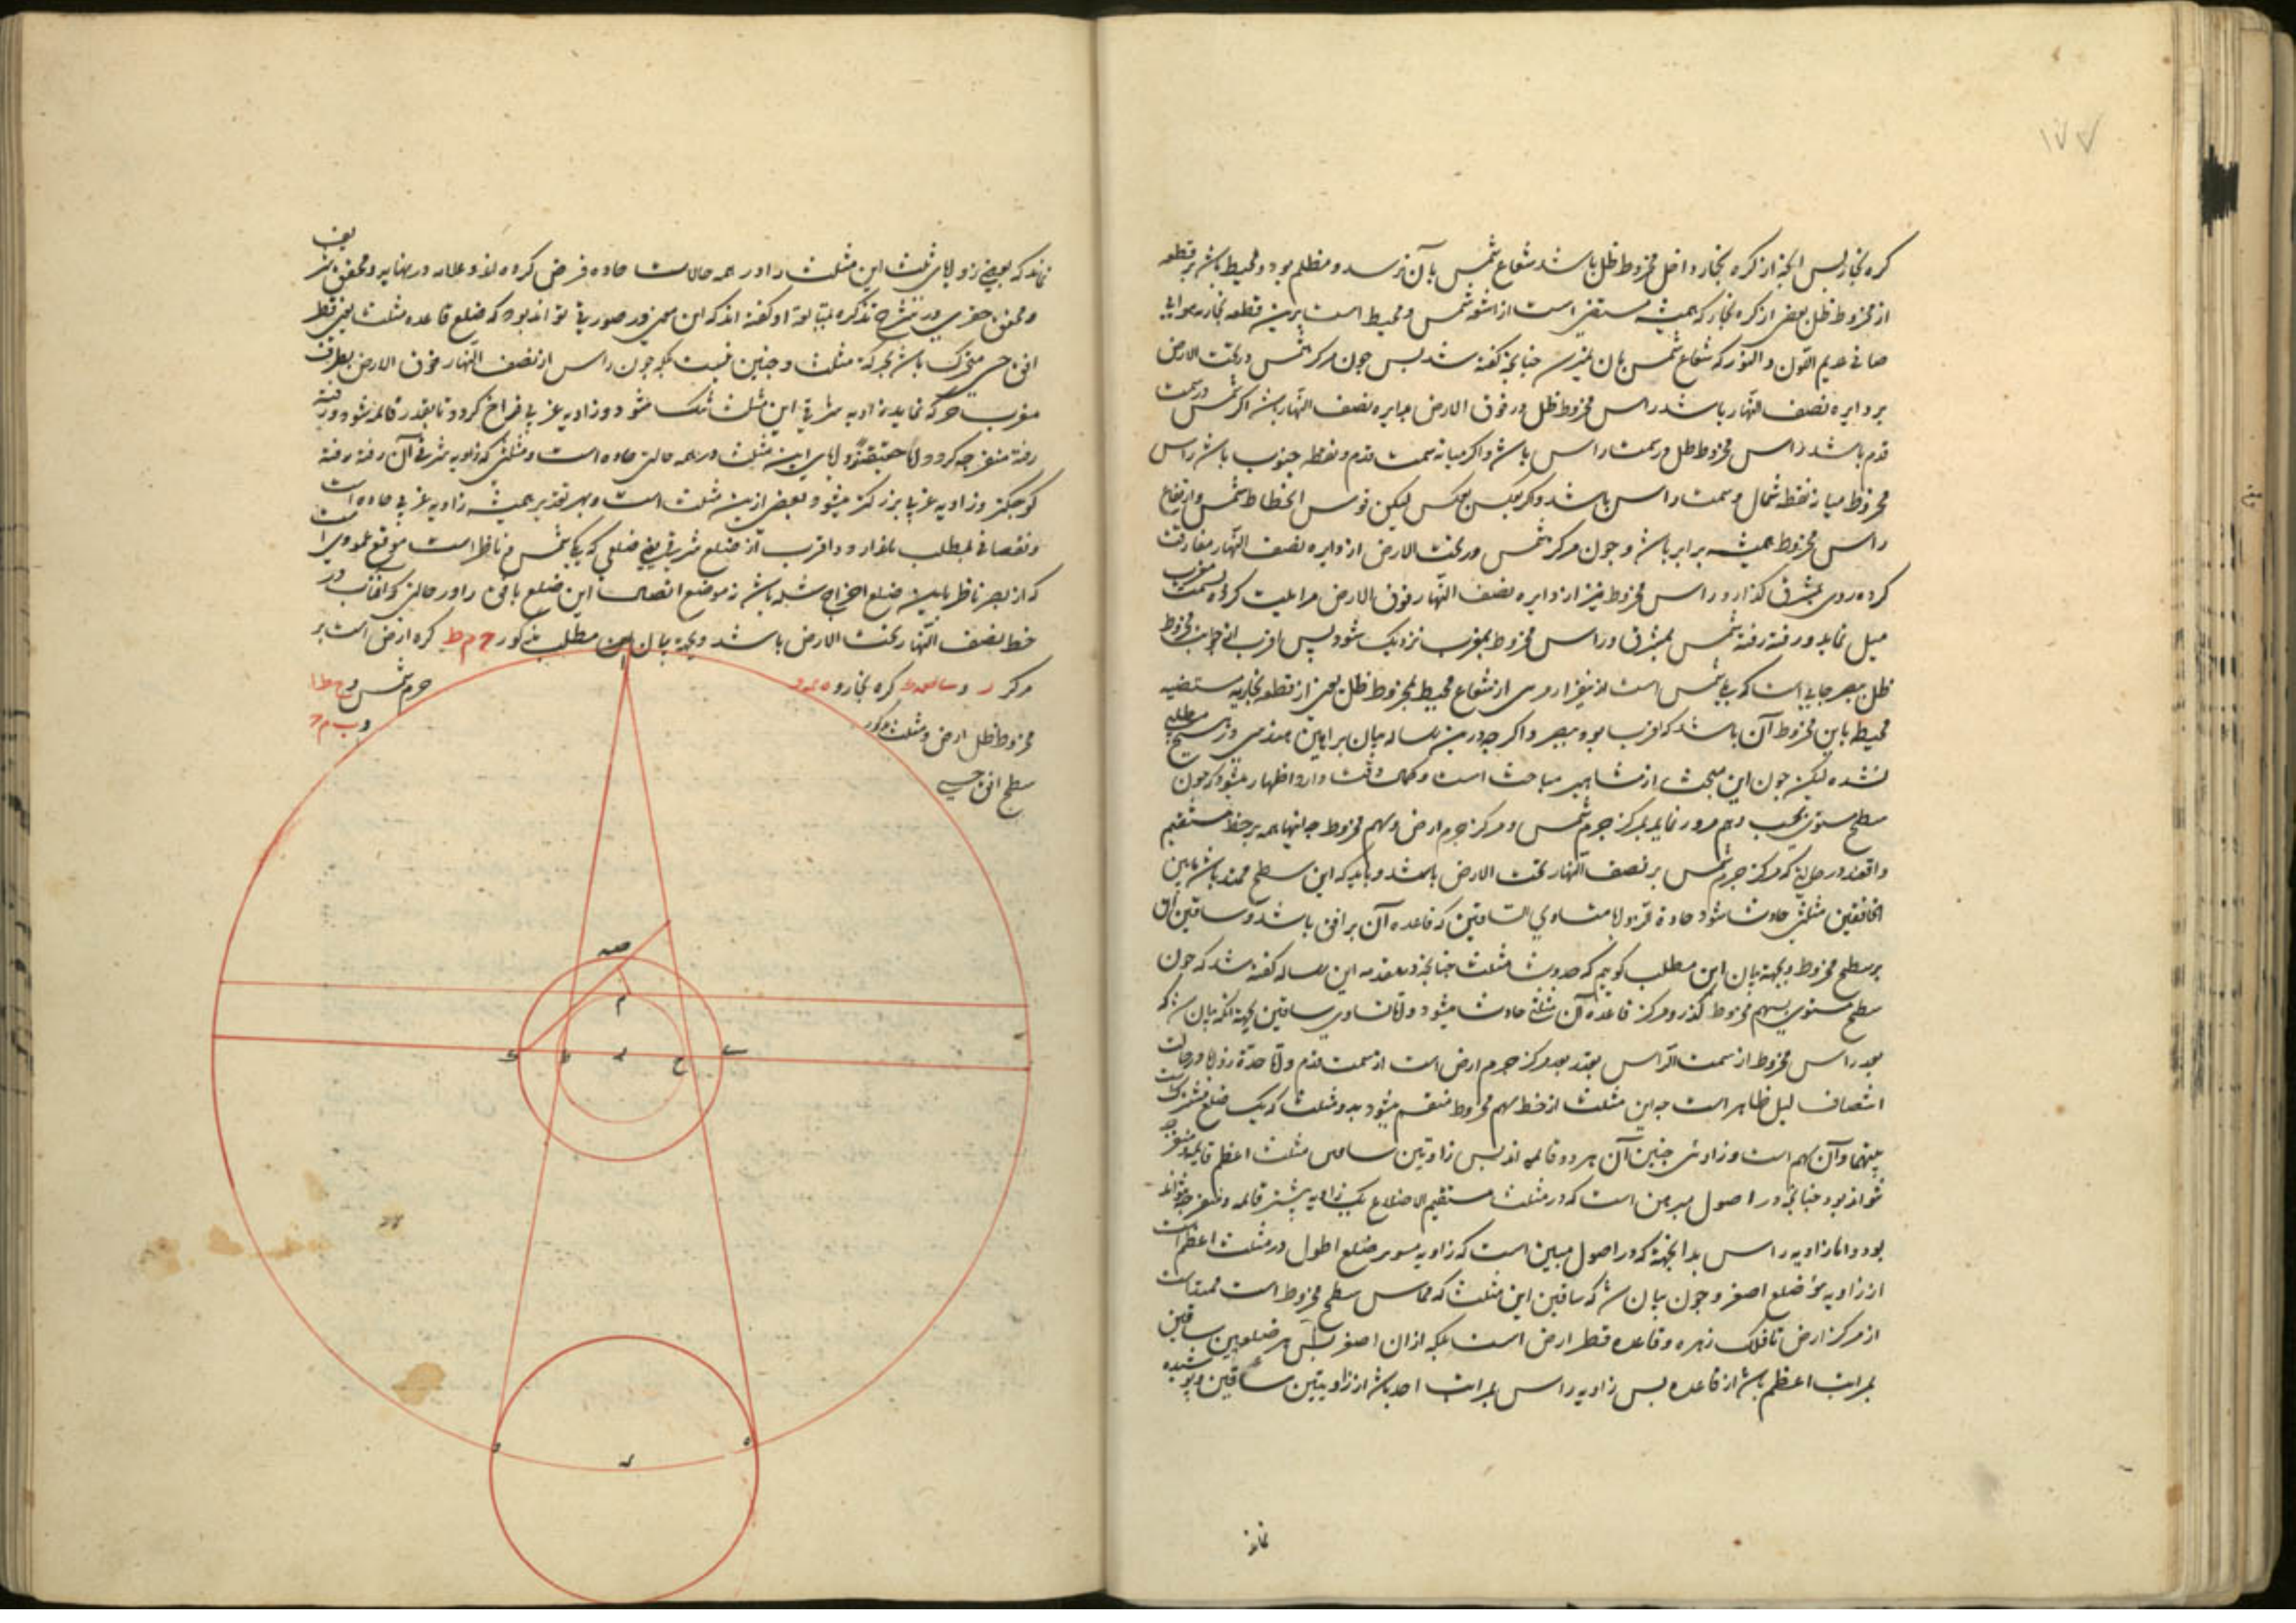 ۱۷۷
کره بخار پس آنچه از کره بخار داخل مخروط ظل باشد شعاع شمس بآن نرسد و مظلم بود و محیط باشد بر قطعه
از مخروط ظل بعضی از کره بخار که همیشه مستضی است از اشعه شمس و محیط است برین قطعه بخاریه هوای
صافی عدیم اللون و النور که شعاع شمس بآن نمیرسد چنانچه گفته شد پس چون مرکز شمس در تحت الارض
بر دایره نصف النهار باشد راس مخروط ظل در فوق الارض بدایره نصف النهار باشد اگر شمس در سمت
قدم باشد راس مخروط ظل در سمت راس باشد و اگر میانه سمت قدم و نقطه جنوب باشد راس
مخروط میانه نقطه شمال و سمت راس باشد و گر بعکس بعکس لیکن قوس انحطاط شمس و ارتفاع
راس مخروط همیشه برابر باشد و چون مرکز شمس در تحت الارض از دایره نصف النهار مفارقت
کرده روی بمشرق گذارد راس مخروط نیز از دایره نصف النهار فوق الارض مراعیت کرده بسمت مغرب
میل نماید و رفته رفته شمس بمشرق و راس مخروط بمغرب نزدیک شود پس اقرب اجزای جوانب مخروط
ظل ببصر جانبی است که یلی شمس است
محیط باین مخروط آن باشد که اقرب بود ببصر و اگر چه درین رساله بیان براهین هندسی
نشده لیکن چون این مبحث از مشاهیر مباحث است و کمال دقت دارد اظهار میشود که چون
سطح مستوی بحسب وهم مرور نماید بمرکز جرم شمس و مرکز جرم ارض و سهم مخروط چه اینها همه بر خط مستقیم
واقعند در حالتی که مرکز جرم شمس بر نصف النهار تحت الارض باشد و باید که این سطح ممتد باشد مابین
الخافقین مثلثی حادث شود حادة الزوایا متساوی الساقین که قاعده آن بر افق باشد و ساقین آن
بر سطح مخروط و بجهة بیان این مطلب گوییم که حدوث مثلث چنانچه در مقدمه این رساله گفته شد که چون
سطح مستوی بسهم مخروط گذرد و مرکز قاعده آن مثلثی حادث میشود و اما تساوی ساقین بجهة آنکه بیان شد که
بعد راس مخروط از سمت الراس بقدر بعد مرکز جرم ارض است از سمت قدم و اما حدة زوایا در حالت
انتصاف لیل ظاهر است چه این مثلث از خط سهم مخروط منقسم میشود بدو مثلث که یک ضلع مشترک است
بینهما و آن سهم است و زاوتی جنبین آن هر دو قائمه اند پس زاویتین ساقین مثلث اعظم قایمه و منفرجه
نتواند بود چنانچه در اصول مبرهن است که در مثلث مستقیم الاضلاع یک زاویه بیشتر قائمه و منفرجه نتواند
بود و اما زاویه راس بدانجهة که در اصول مبین است که زاویه موتر ضلع اطول در مثلث اعظم است
از زاویه موتر ضلع اصغر و چون بیان شد که ساقین این مثلث که مماس سطح مخروط است ممتد است
از مرکز ارض تا فلک زهره و قاعده قطر ارض است بلکه از آن اصغر پس هر ضلعین ساقین
بمراتب اعظم باشد از قاعده پس زاویه راس بمراتب احد باشد از زاویتین ساقین و پوشیده
نماند
نماند که بعضی زوایای ثلث این مثلث را در همه حالات حاده فرض کرده اند و علامه در نهایه و محقق شریف
و محقق خفری در شرح تذکره بمتابعت او گفته اند که این معنی در صورتی تواند بود که ضلع قاعده مثلث یعنی قطر
افق حسی متحرک باشد بحرکة مثلث و چنین نیست بلکه چون راس از نصف النهار فوق الارض بطرف
مغرب حرکة نماید زاویه شرقی این مثلث تنگ شود و زاویه غربی فراخ گردد تا بقدر قائمه شود و رفته
رفته منفرجه گردد
کوچکتر و زاویه غربی بزرگتر میشود بعضی ازین مثلث است و بهر تقدیر همیشه زاویه غربی حاده است
و نقصانی بمطلب ندارد و اقرب از ضلع شرقی یعنی ضلعی که یلی شمس و ناظر است موقع عمودی است
که از بصر ناظر باین ضلع اخراج شده باشد نه موضع اتصال این ضلع بافق را در حالتی که آفتاب در
خط نصف النهار تحت الارض باشد و بجهة بیان این مطلب مذکور ح م ط کره ارض است بر
مرکز ر و کره بخار و جرم شمس و ح ط ا
مخروط ظل ارض و مثلث مذکور
سطح افق حسی
ا
م
ک ط ر ح
د ه